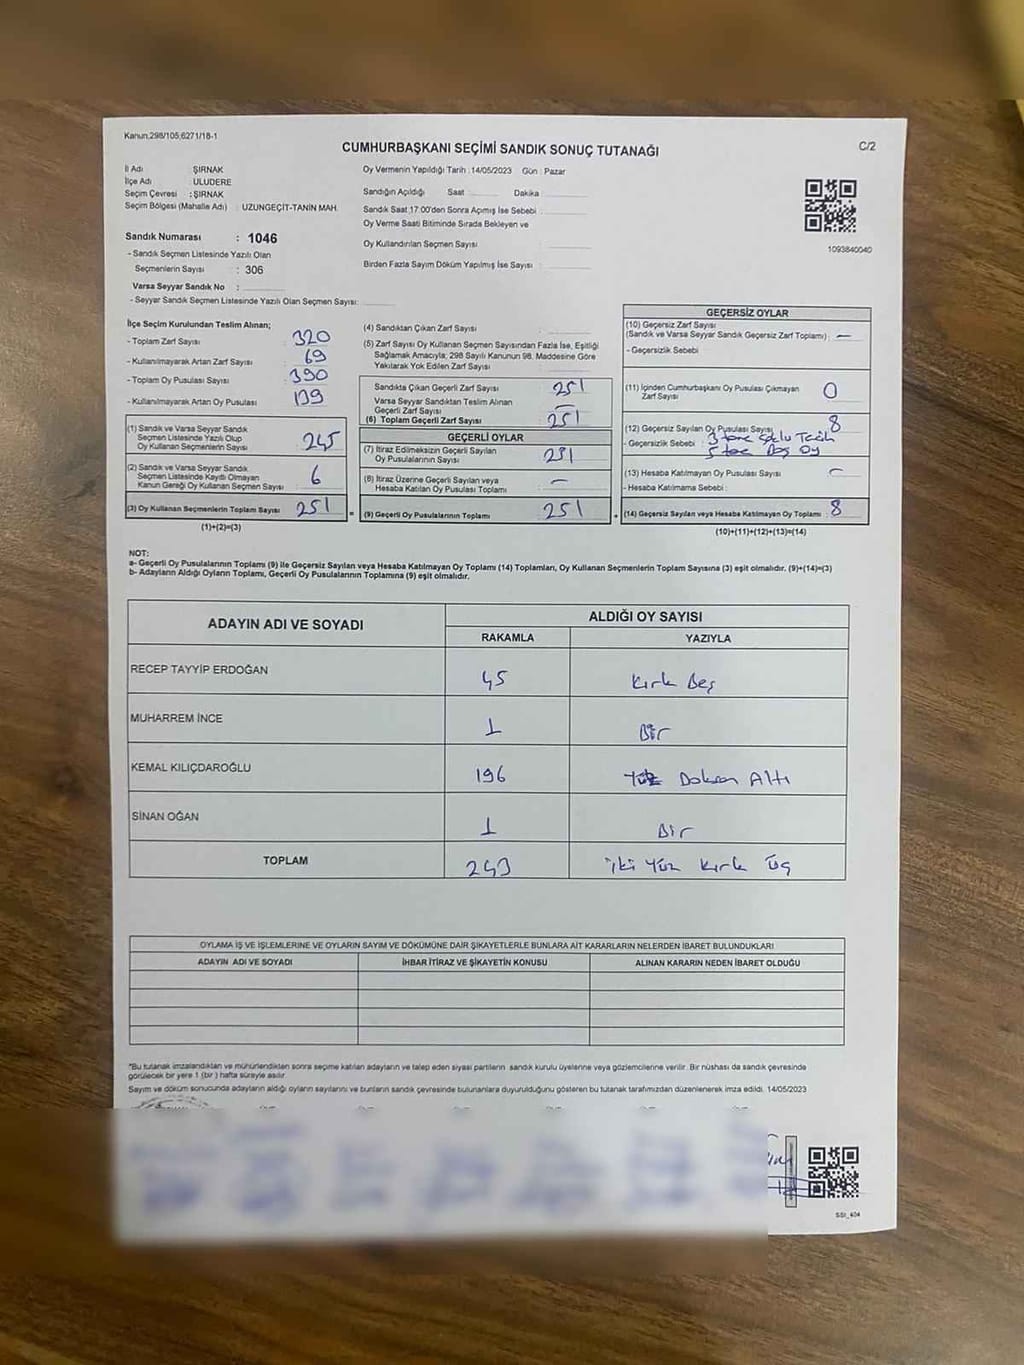 Kanun,298/105;6271/18-1
CUMHURBAŞKANI SEÇİMİ SANDIK SONUÇ TUTANAĞI
C/2
İl Adı : ŞIRNAK
İlçe Adı : ULUDERE
Seçim Çevresi : ŞIRNAK
Seçim Bölgesi (Mahalle Adı) : UZUNGEÇİT-TANİN MAH.
Sandık Numarası : 1046
- Sandık Seçmen Listesinde Yazılı Olan
Seçmenlerin Sayısı : 306
Varsa Seyyar Sandık No :
- Seyyar Sandık Seçmen Listesinde Yazılı Olan Seçmen Sayısı:
Oy Vermenin Yapıldığı Tarih :14/05/2023 Gün : Pazar
Sandığın Açıldığı Saat Dakika
Sandık Saat 17:00'den Sonra Açmış İse Sebebi :
Oy Verme Saati Bitiminde Sırada Bekleyen ve
Oy Kullandırılan Seçmen Sayısı :
Birden Fazla Sayım Döküm Yapılmış İse Sayısı :
1093840040
İlçe Seçim Kurulundan Teslim Alınan;
- Toplam Zarf Sayısı : 320
- Kullanılmayarak Artan Zarf Sayısı : 69
- Toplam Oy Pusulası Sayısı : 390
- Kullanılmayarak Artan Oy Pusulası : 139
(1) Sandık ve Varsa Seyyar Sandık
Seçmen Listesinde Yazılı Olup
Oy Kullanan Seçmenlerin Sayısı 245
(2) Sandık ve Varsa Seyyar Sandık
Seçmen Listesinde Kayıtlı Olmayan
Kanun Gereği Oy Kullanan Seçmen Sayısı 6
(3) Oy Kullanan Seçmenlerin Toplam Sayısı 251
(1)+(2)=(3)
(4) Sandıktan Çıkan Zarf Sayısı :
(5) Zarf Sayısı Oy Kullanan Seçmen Sayısından Fazla İse, Eşitliği
Sağlamak Amacıyla; 298 Sayılı Kanunun 98. Maddesine Göre
Yakılarak Yok Edilen Zarf Sayısı :
Sandıkta Çıkan Geçerli Zarf Sayısı 251
Varsa Seyyar Sandıktan Teslim Alınan
Geçerli Zarf Sayısı –
(6) Toplam Geçerli Zarf Sayısı 251
GEÇERLİ OYLAR
(7) İtiraz Edilmeksizin Geçerli Sayılan
Oy Pusulalarının Sayısı 251
(8) İtiraz Üzerine Geçerli Sayılan veya
Hesaba Katılan Oy Pusulası Toplamı –
(9) Geçerli Oy Pusulalarının Toplamı 251
GEÇERSİZ OYLAR
(10) Geçersiz Zarf Sayısı
(Sandık ve Varsa Seyyar Sandık Geçersiz Zarf Toplamı) : –
- Geçersizlik Sebebi :
(11) İçinden Cumhurbaşkanı Oy Pusulası Çıkmayan
Zarf Sayısı : 0
(12) Geçersiz Sayılan Oy Pusulası Sayısı : 8
- Geçersizlik Sebebi : 3 tane
5 tane Boş Oy
(13) Hesaba Katılmayan Oy Pusulası Sayısı : –
- Hesaba Katılmama Sebebi :
(14) Geçersiz Sayılan veya Hesaba Katılmayan Oy Toplamı : 8
(10)+(11)+(12)+(13)=(14)
NOT:
a- Geçerli Oy Pusulalarının Toplamı (9) ile Geçersiz Sayılan veya Hesaba Katılmayan Oy Toplamı (14) Toplamları, Oy Kullanan Seçmenlerin Toplam Sayısına (3) eşit olmalıdır. (9)+(14)=(3)
b- Adayların Aldığı Oyların Toplamı, Geçerli Oy Pusulalarının Toplamına (9) eşit olmalıdır.
ADAYIN ADI VE SOYADI
ALDIĞI OY SAYISI
RAKAMLA YAZIYLA
RECEP TAYYİP ERDOĞAN 45 Kırk Beş
MUHARREM İNCE 1 Bir
KEMAL KILIÇDAROĞLU 196 Yüz Doksan Altı
SİNAN OĞAN 1 Bir
TOPLAM 243 İki Yüz Kırk Üç
OYLAMA İŞ VE İŞLEMLERİNE VE OYLARIN SAYIM VE DÖKÜMÜNE DAİR ŞİKAYETLERLE BUNLARA AİT KARARLARIN NELERDEN İBARET BULUNDUKLARI
ADAYIN ADI VE SOYADI İHBAR İTİRAZ VE ŞİKAYETİN KONUSU ALINAN KARARIN NEDEN İBARET OLDUĞU
"Bu tutanak imzalandıktan ve mühürlendikten sonra seçime katılan adayların ve talep eden siyasi partilerin sandık kurulu üyelerine veya gözlemcilerine verilir. Bir nüshası da sandık çevresinde
görülecek bir yere 1 (bir) hafta süreyle asılır.
Sayım ve döküm sonucunda adayların aldığı oyların sayılarını ve bunların sandık çevresinde bulunanlara duyurulduğunu gösteren bu tutanak tarafımızdan düzenlenerek imza edildi. 14/05/2023
SSI_404